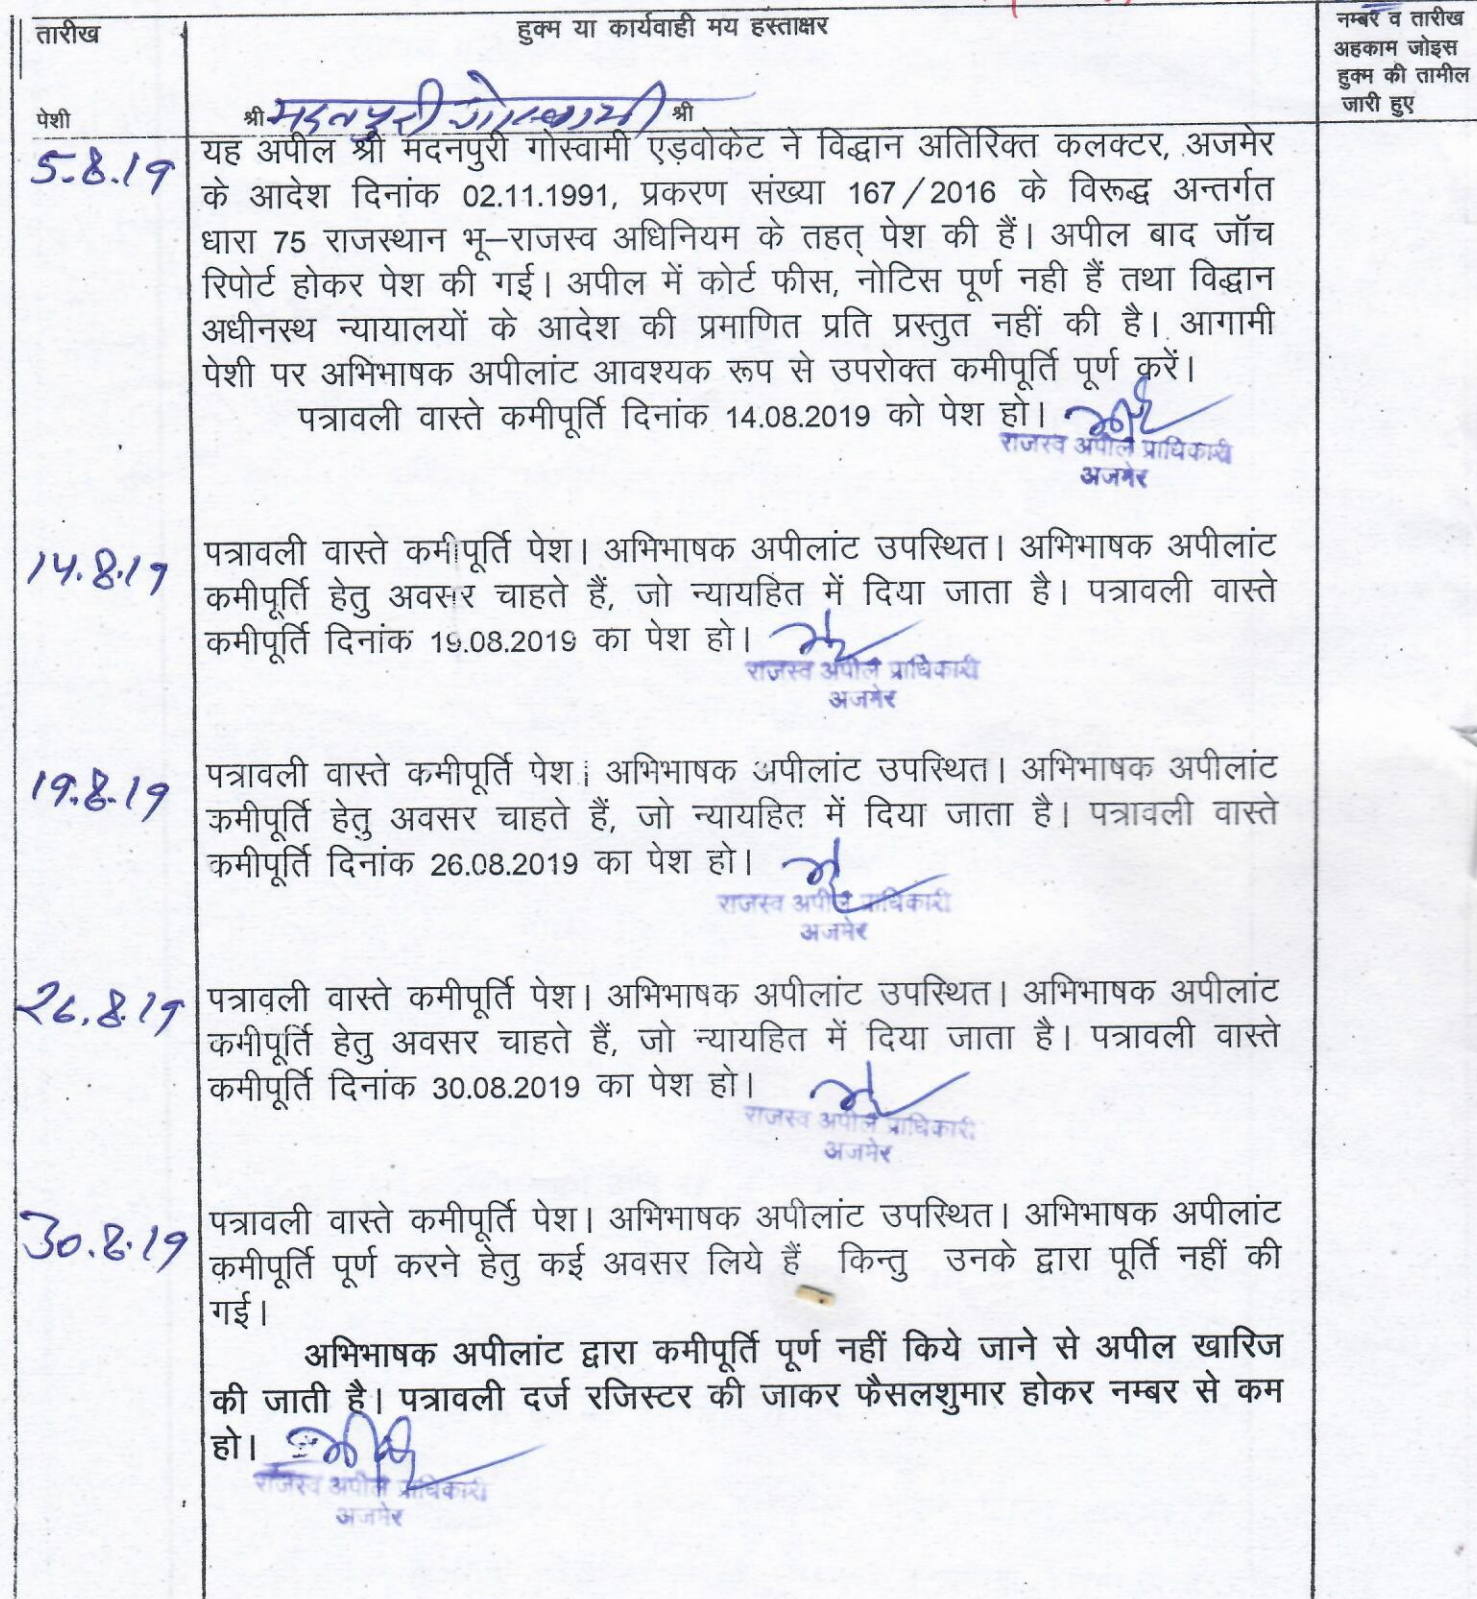 तारीख
हुक्म या कार्यवाही मय हस्ताक्षर
नम्बर व तारीख
अहकाम जोइस
हुक्म की तामील
जारी हुए
पेशी
श्री मदनपुरी गोस्वामी श्री
5.8.19
यह अपील श्री मदनपुरी गोस्वामी एड़वोकेट ने विद्धान अतिरिक्त कलक्टर, अजमेर
के आदेश दिनांक 02.11.1991, प्रकरण संख्या 167/2016 के विरूद्ध अन्तर्गत
धारा 75 राजस्थान भू–राजस्व अधिनियम के तहत् पेश की हैं। अपील बाद जॉच
रिपोर्ट होकर पेश की गई। अपील में कोर्ट फीस, नोटिस पूर्ण नही हैं तथा विद्धान
अधीनस्थ न्यायालयों के आदेश की प्रमाणित प्रति प्रस्तुत नहीं की है। आगामी
पेशी पर अभिभाषक अपीलांट आवश्यक रूप से उपरोक्त कमीपूर्ति पूर्ण करें।
पत्रावली वास्ते कमीपूर्ति दिनांक 14.08.2019 को पेश हो।
राजस्व अपील प्राधिकारी
अजमेर
14.8.19
पत्रावली वास्ते कमीपूर्ति पेश। अभिभाषक अपीलांट उपस्थित। अभिभाषक अपीलांट
कमीपूर्ति हेतु अवसर चाहते हैं, जो न्यायहित में दिया जाता है। पत्रावली वास्ते
कमीपूर्ति दिनांक 19.08.2019 का पेश हो।
राजस्व अपील प्राधिकारी
अजमेर
19.8.19
पत्रावली वास्ते कमीपूर्ति पेश। अभिभाषक अपीलांट उपस्थित। अभिभाषक अपीलांट
कमीपूर्ति हेतु अवसर चाहते हैं, जो न्यायहित में दिया जाता है। पत्रावली वास्ते
कमीपूर्ति दिनांक 26.08.2019 का पेश हो।
राजस्व अपील प्राधिकारी
अजमेर
26.8.19
पत्रावली वास्ते कमीपूर्ति पेश। अभिभाषक अपीलांट उपस्थित। अभिभाषक अपीलांट
कमीपूर्ति हेतु अवसर चाहते हैं, जो न्यायहित में दिया जाता है। पत्रावली वास्ते
कमीपूर्ति दिनांक 30.08.2019 का पेश हो।
राजस्व अपील प्राधिकारी
अजमेर
30.8.19
पत्रावली वास्ते कमीपूर्ति पेश। अभिभाषक अपीलांट उपस्थित। अभिभाषक अपीलांट
कमीपूर्ति पूर्ण करने हेतु कई अवसर लिये हैं किन्तु उनके द्वारा पूर्ति नहीं की
गई।
अभिभाषक अपीलांट द्वारा कमीपूर्ति पूर्ण नहीं किये जाने से अपील खारिज
की जाती है। पत्रावली दर्ज रजिस्टर की जाकर फैसलशुमार होकर नम्बर से कम
हो।
राजस्व अपील प्राधिकारी
अजमेर